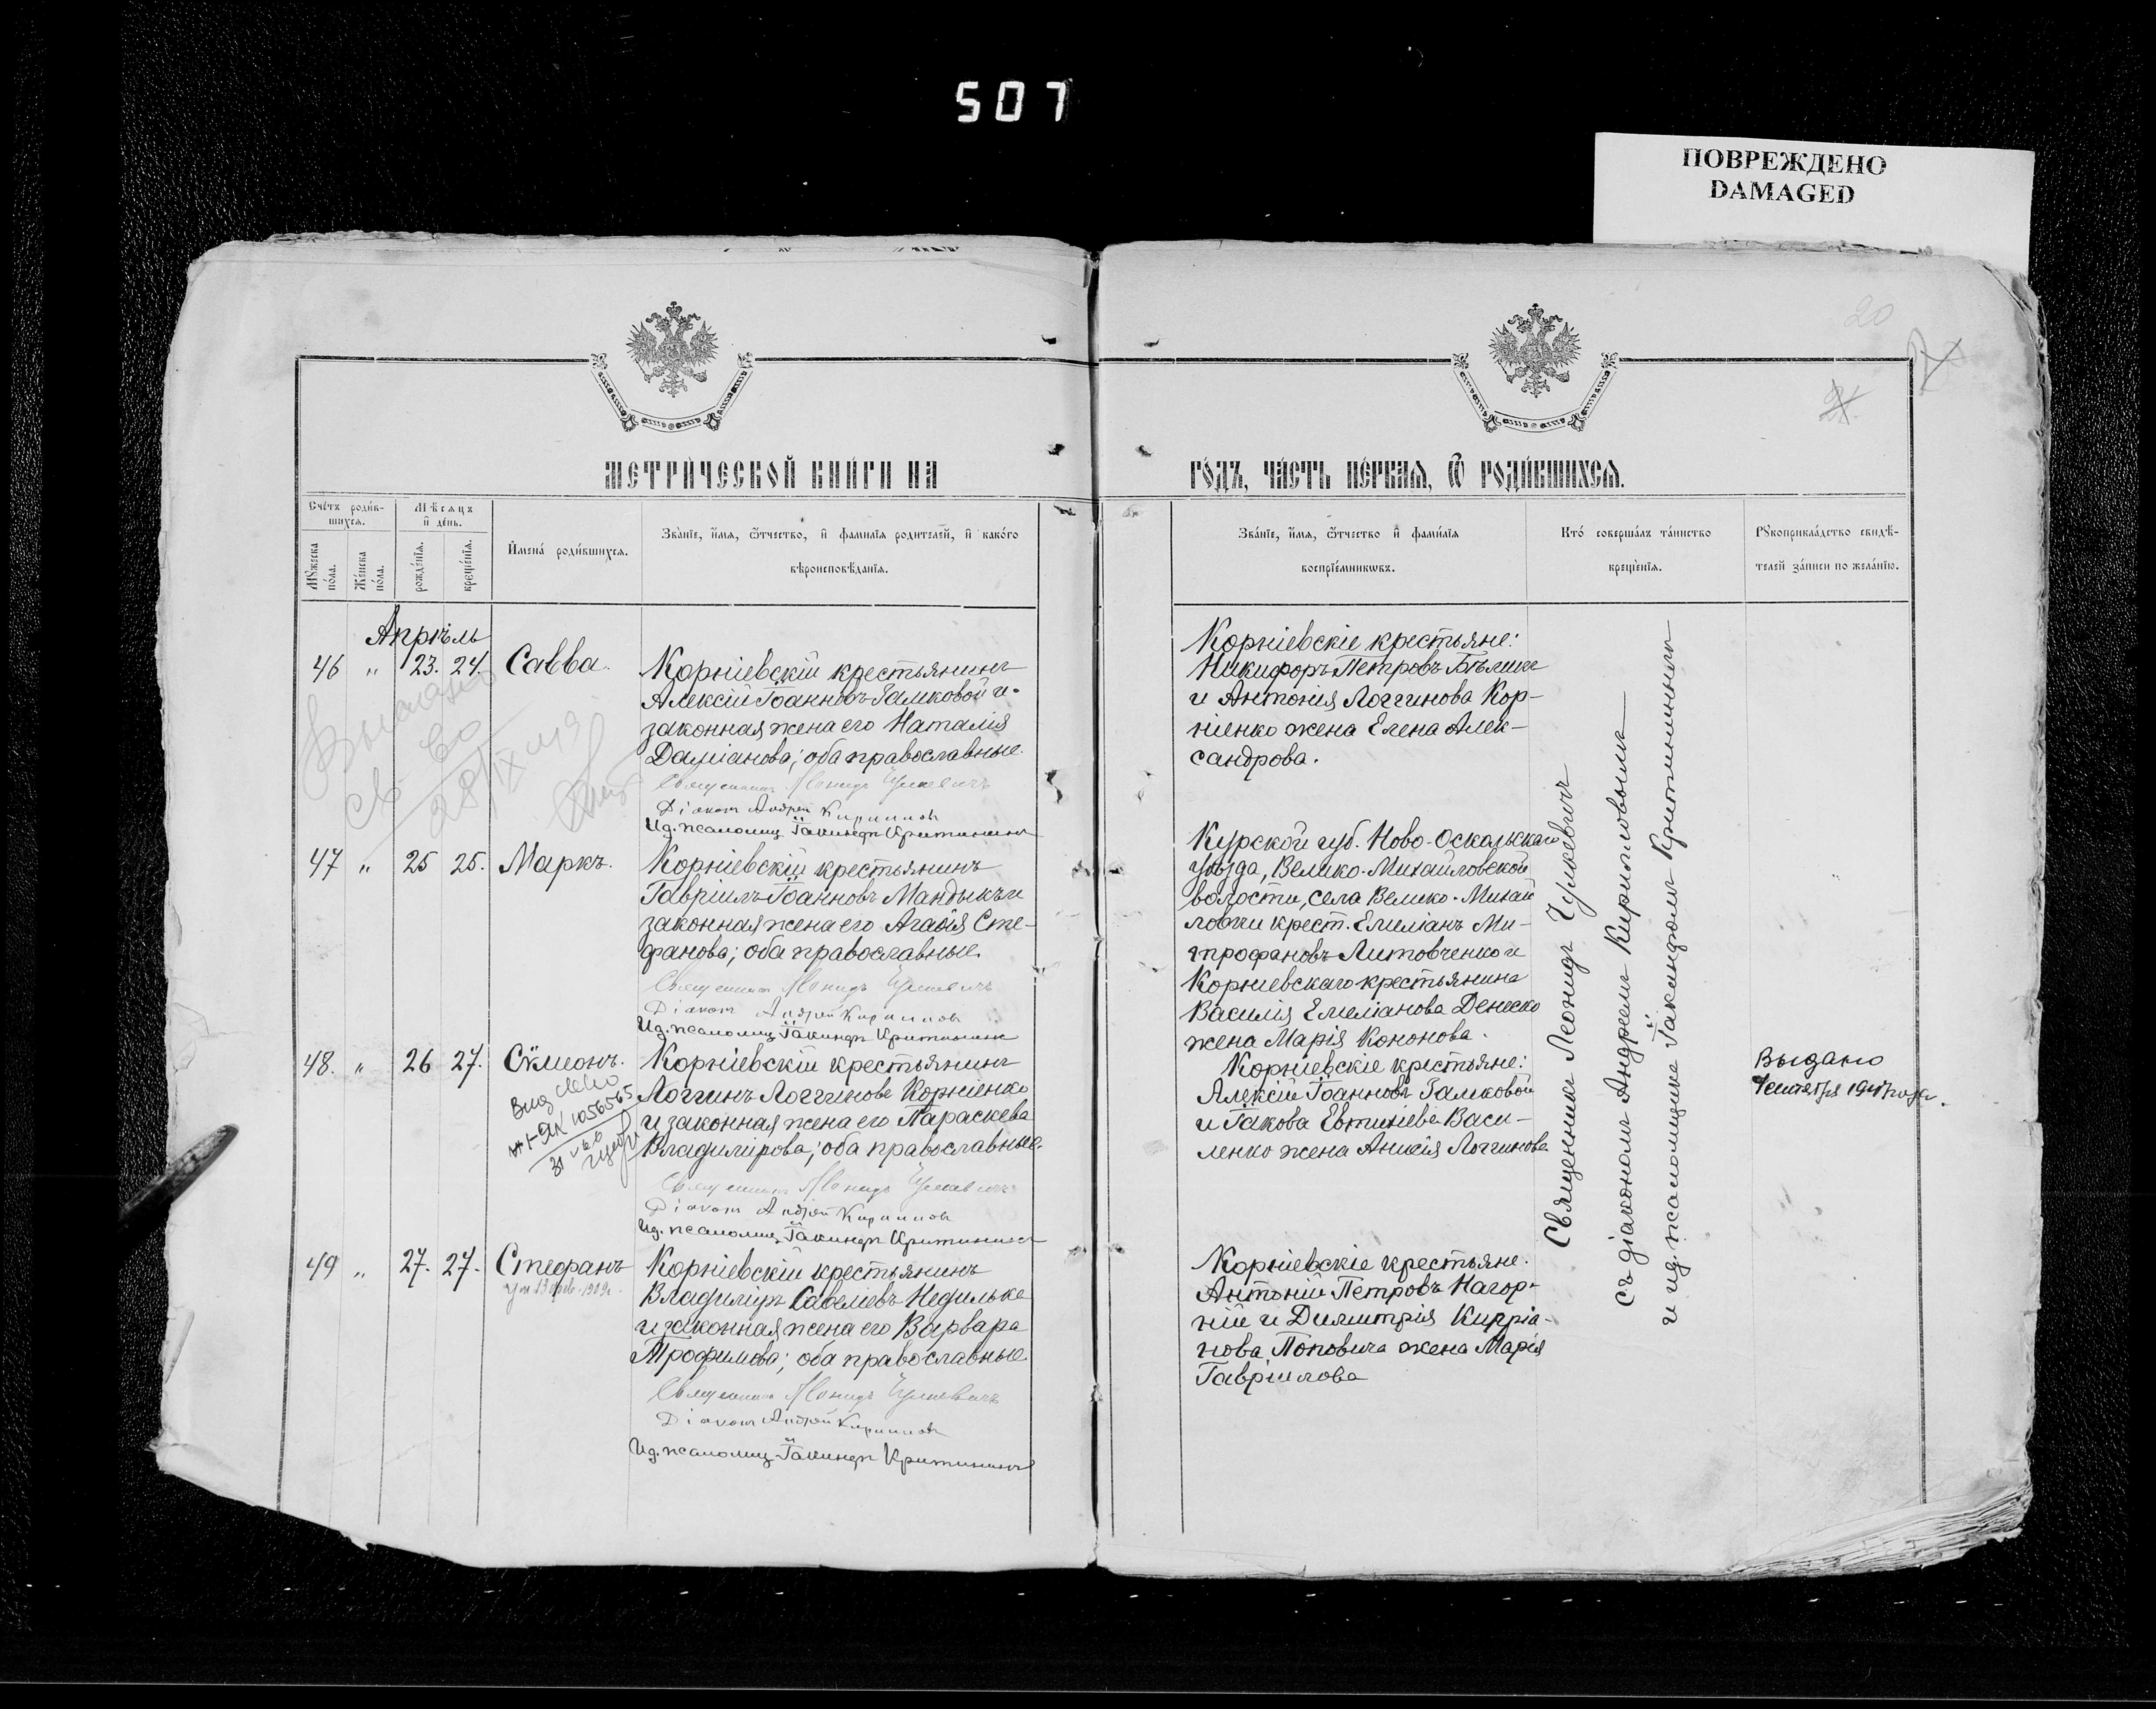 507
ПОВРЕЖДЕНО
DAMAGED
20
МЕТРИЧЕСКОЙ КНИГИ НА
ГОДЪ, ЧАСТЬ ПЕРВАЯ, Ѡ РОДИВШИХСЯ.
Счетъ родив-
шихся.
Мужеска
пола.
Женска
пола.
Мѣсяцъ
и день.
рожденія.
крещенія.
Имена родившихся.
Званіе, имя, отчество, и фамилія родителей, и какого
вѣроисповѣданія.
Званіе, имя, отчество и фамилія
воспріемниковъ.
Кто совершалъ таинство
крещенія.
Рукоприкладство свидѣ-
телей записи по желанію.
Апрѣль
46 " 23. 24. Савва.
Корніевскій крестьянинъ
Алексій Іоанновъ Замковой и
законная жена его Наталія
Даміанова; оба православные.
Священникъ Леонидъ Чулкевичъ
Діаконъ Андрей Кирилловъ
Ид. псаломщ. Іакинѳъ Критининъ
Корніевскіе крестьяне:
Никифоръ Петровъ Бѣликъ
и Антонія Логгинова Кор-
ніенко жена Елена Алек-
сандрова.
47 " 25 25. Маркъ.
Корніевскій крестьянинъ
Гавріилъ Іоанновъ Мандыкъ и
законная жена его Агафія Сте-
фанова; оба православные.
Священникъ Леонидъ Чулкевичъ
Діаконъ Андрей Кирилловъ
Ид. псаломщ. Іакинѳъ Критининъ
Курской губ. Ново-Оскольскаго
уѣзда, Велико-Михайловской
волости, села Велико-Михай
ловки крест. Емеліанъ Ми-
трофановъ Литовченко и
Корніевскаго крестьянина
Василія Емеліанова Денеско
жена Марія Кононова.
48. " 26 27. Сѵмеонъ.
Корніевскій крестьянинъ
Логгинъ Логгиновъ Корніенко
и законная жена его Параскева
Владимірова; оба православные.
Священникъ Леонидъ Чулкевичъ
Діаконъ Андрей Кирилловъ
Ид. псаломщ. Іакинѳъ Критининъ
Корніевскіе крестьяне:
Алексій Іоанновъ Замковой
и Іакова Евтихіева Васи-
ленко жена Анисія Логгинова
Выдано
49 " 27. 27. Стефанъ
Корніевскій крестьянинъ
Владиміръ Савеліевъ Недилько
и законная жена его Варвара
Трофимова; оба православные.
Священникъ Леонидъ Чулкевичъ
Діаконъ Андрей Кирилловъ
Ид. псаломщ. Іакинѳъ Критининъ
Корніевскіе крестьяне:
Антоній Петровъ Нагор-
ній и Димитрія Кипріа-
нова Поповича жена Марія
Гавріилова
Священникъ Леонидъ Чулкевичъ
съ діакономъ Андреемъ Кирилловымъ
и ид. псаломщика Іакинѳомъ Критининымъ